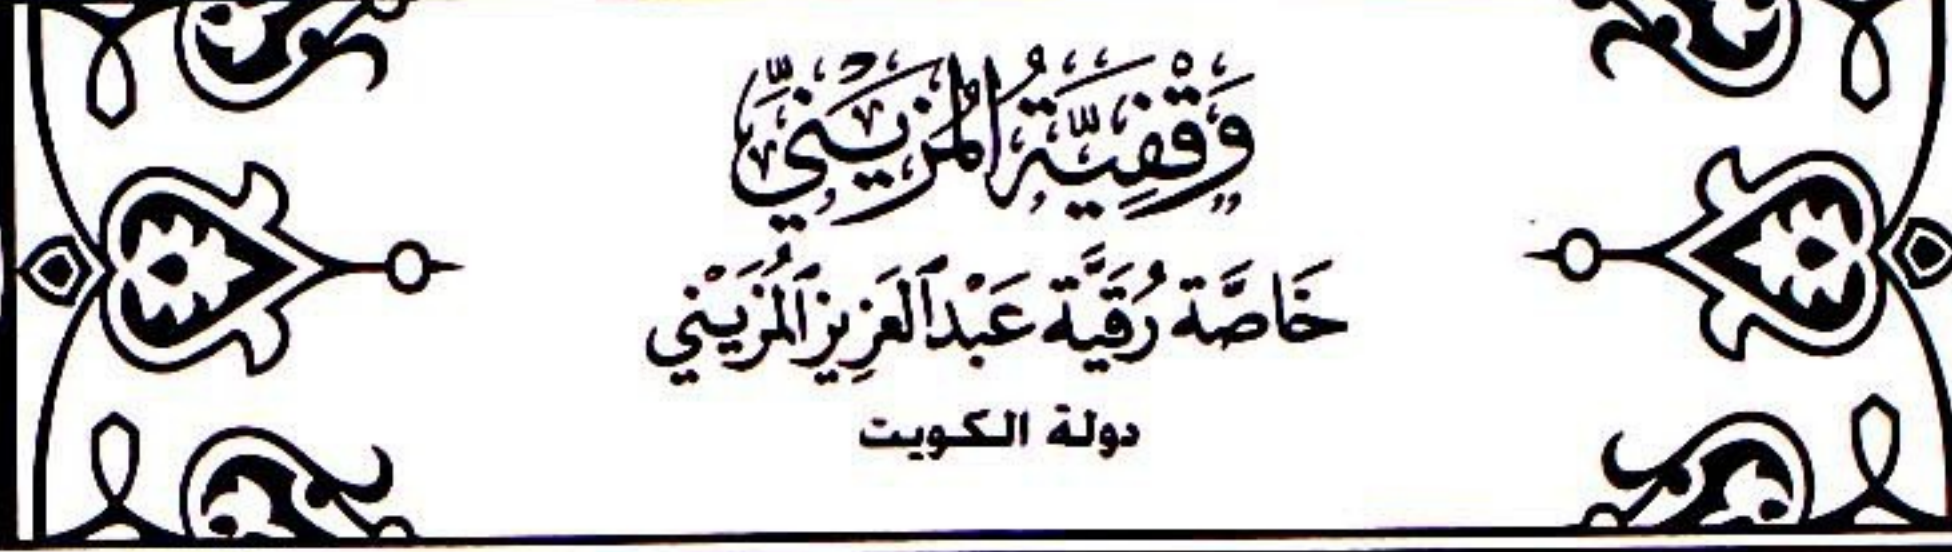 وَقْفِيَّةُ المُزَيْنِيِّ
خَاصَّة رُقَيَّة عَبْدالعَزِيز المُزَيْني
دولة الكويت